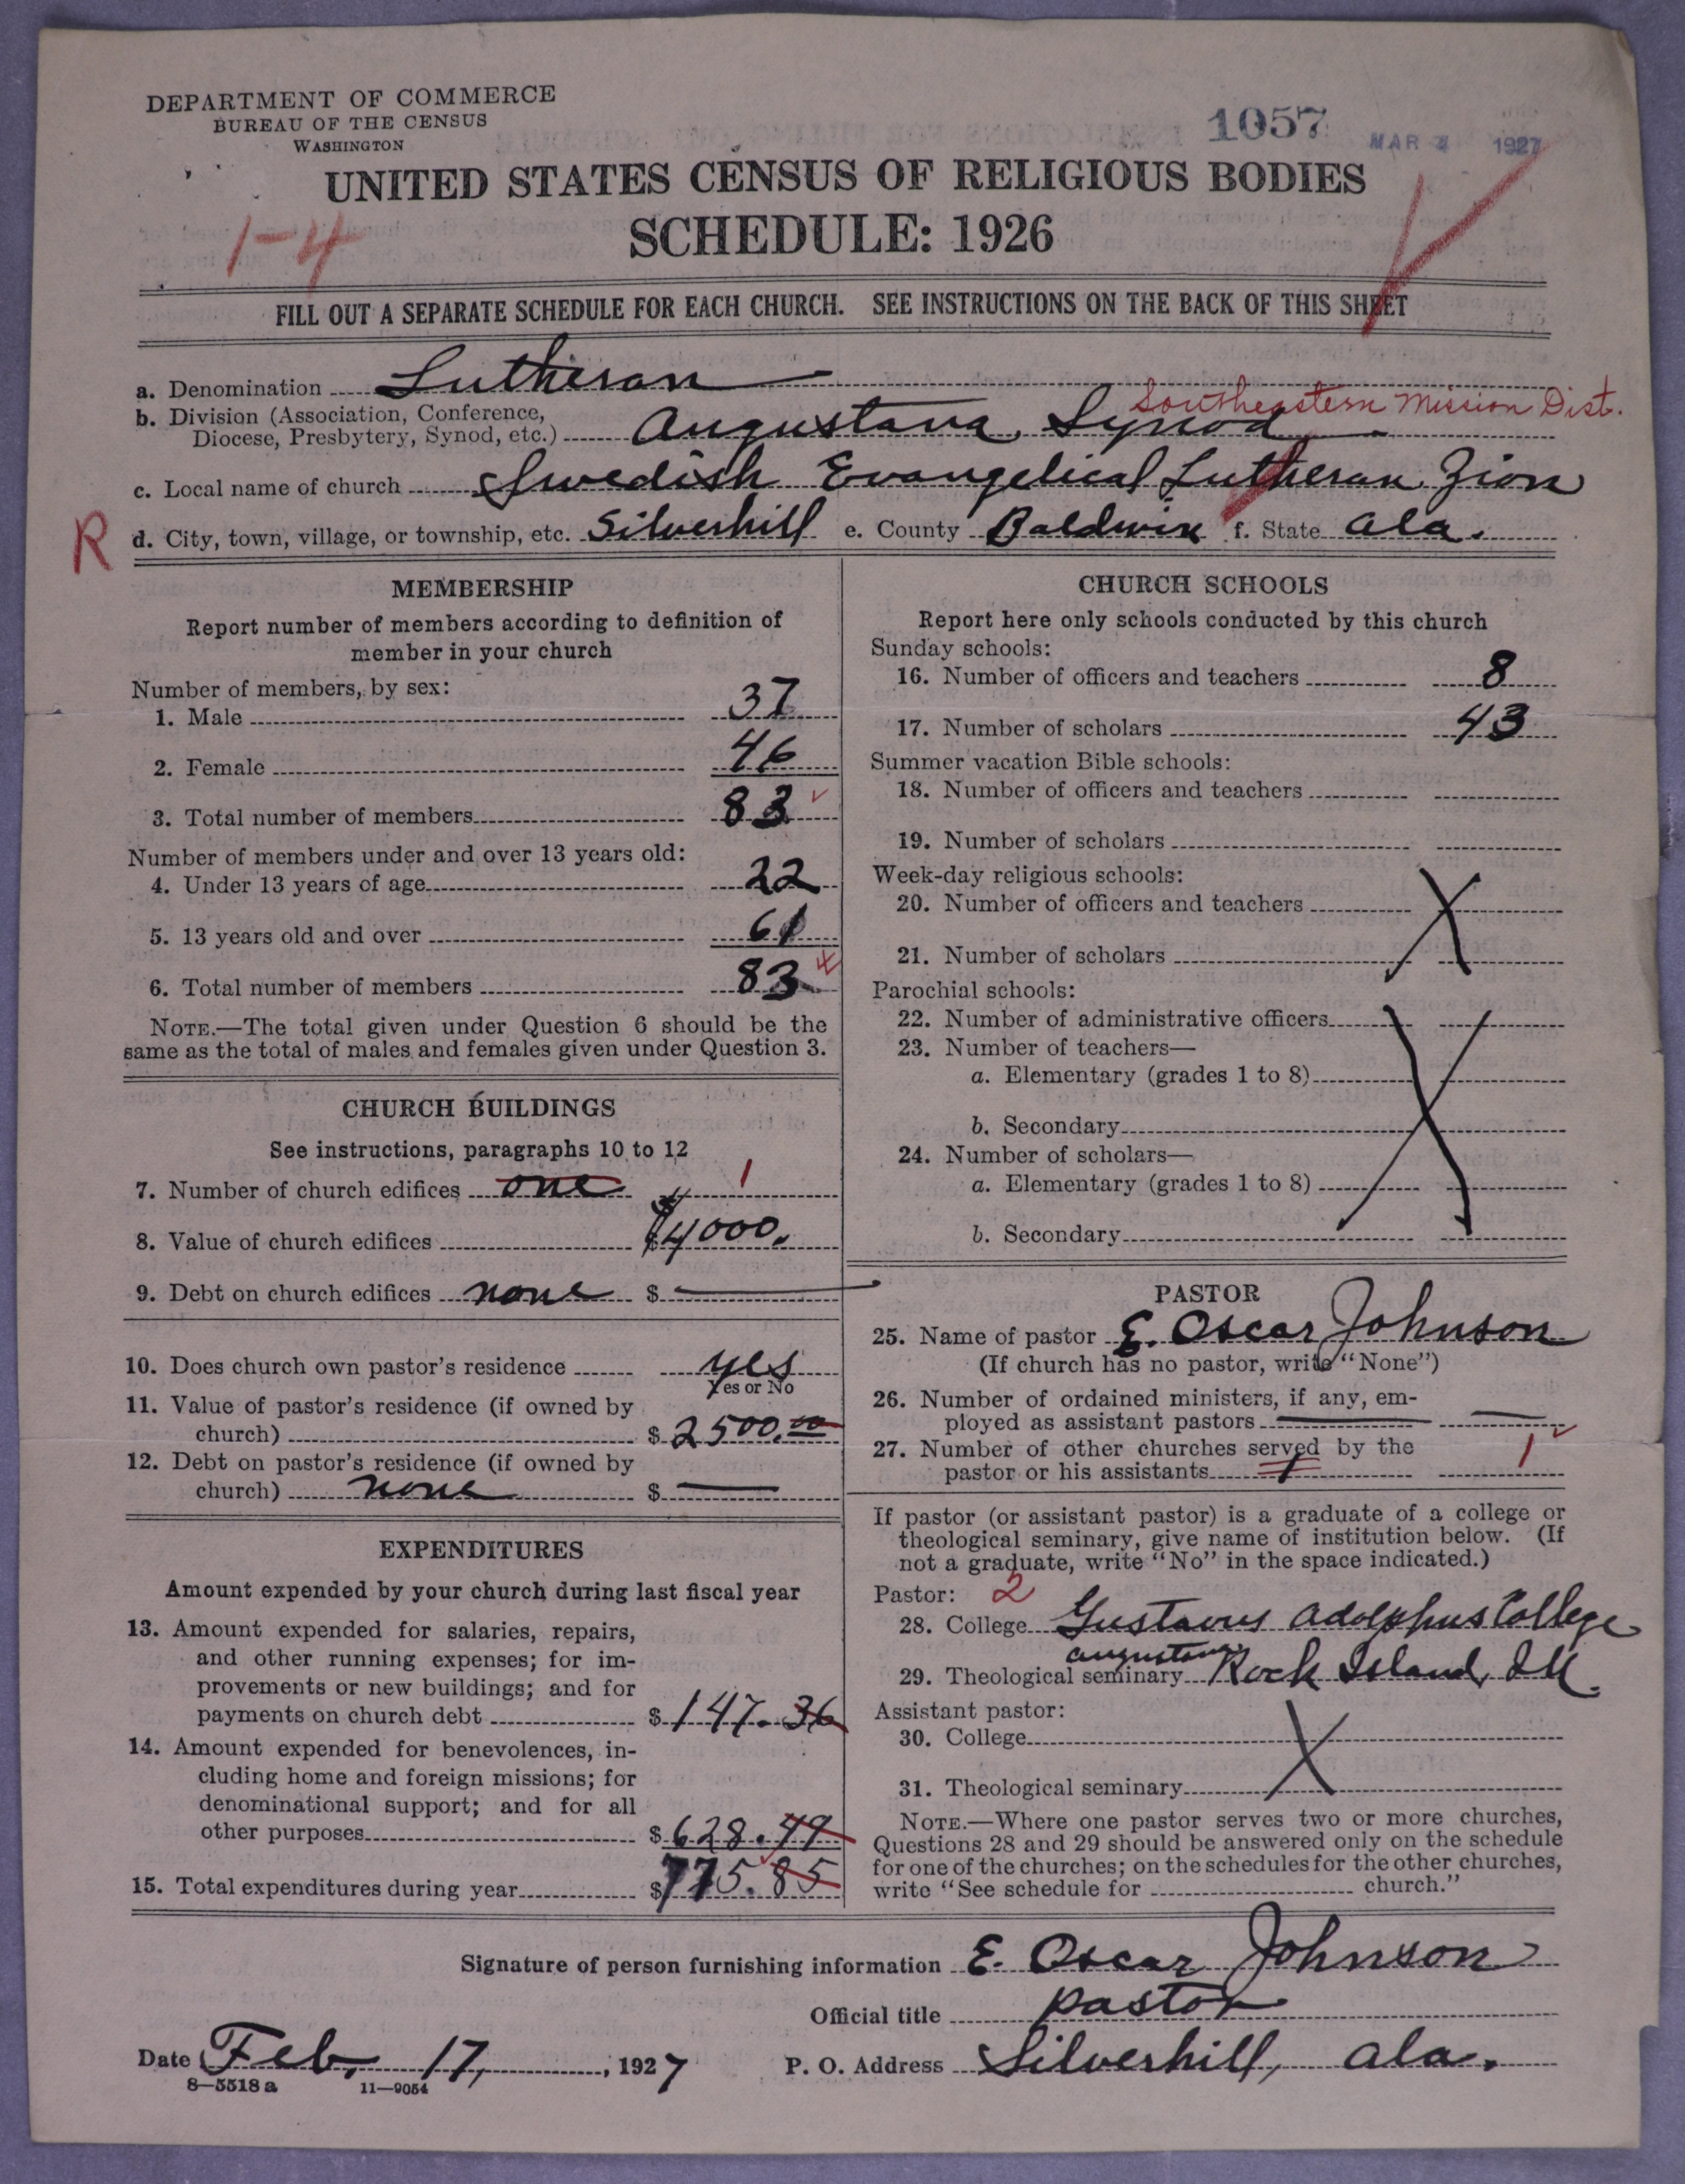 DEPARTMENT OF COMMERCE
BUREAU OF THE CENSUS
WASHINGTON
1057
MAR 4 1927
UNITED STATES CENSUS OF RELIGIOUS BODIES
1-4
SCHEDULE: 1926
FILL OUT A SEPARATE SCHEDULE FOR EACH CHURCH. SEE INSTRUCTIONS ON THE BACK OF THIS SHEET
a. Denomination Lutheran
b. Division (Association, Conference,
Diocese, Presbytery, Synod, etc.) Augustana Synod Southeastern Mission Dist.
c. Local name of church Swedish Evangelical Lutheran Zion
R d. City, town, village, or township, etc. Silverhill e. County Baldwin f. State Ala.
MEMBERSHIP
Report number of members according to definition of
member in your church
Number of members, by sex:
1. Male 37
2. Female 46
3. Total number of members 83
Number of members under and over 13 years old:
4. Under 13 years of age 22
5. 13 years old and over 61
6. Total number of members 83
NOTE.—The total given under Question 6 should be the
same as the total of males and females given under Question 3.
CHURCH BUILDINGS
See instructions, paragraphs 10 to 12
7. Number of church edifices one 1
8. Value of church edifices $4000.
9. Debt on church edifices none $ —
10. Does church own pastor's residence yes
Yes or No
11. Value of pastor's residence (if owned by
church) $ 2500.00
12. Debt on pastor's residence (if owned by
church) none $ —
EXPENDITURES
Amount expended by your church during last fiscal year
13. Amount expended for salaries, repairs,
and other running expenses; for im-
provements or new buildings; and for
payments on church debt $ 147.36
14. Amount expended for benevolences, in-
cluding home and foreign missions; for
denominational support; and for all
other purposes $ 628.49
15. Total expenditures during year $ 775.85
CHURCH SCHOOLS
Report here only schools conducted by this church
Sunday schools:
16. Number of officers and teachers 8
17. Number of scholars 43
Summer vacation Bible schools:
18. Number of officers and teachers
19. Number of scholars
Week-day religious schools:
20. Number of officers and teachers
21. Number of scholars
Parochial schools:
22. Number of administrative officers
23. Number of teachers—
a. Elementary (grades 1 to 8)
b. Secondary
24. Number of scholars—
a. Elementary (grades 1 to 8)
b. Secondary
PASTOR
25. Name of pastor E. Oscar Johnson
(If church has no pastor, write "None")
26. Number of ordained ministers, if any, em-
ployed as assistant pastors — —
27. Number of other churches served by the
pastor or his assistants 1 1
If pastor (or assistant pastor) is a graduate of a college or
theological seminary, give name of institution below. (If
not a graduate, write "No" in the space indicated.)
Pastor: 2
28. College Gustavus Adolphus College
29. Theological seminary Augustana Rock Island, Ill.
Assistant pastor:
30. College
31. Theological seminary
NOTE.—Where one pastor serves two or more churches,
Questions 28 and 29 should be answered only on the schedule
for one of the churches; on the schedules for the other churches,
write "See schedule for church."
Signature of person furnishing information E. Oscar Johnson
Official title pastor
Date Feb. 17, 1927 P. O. Address Silverhill, Ala.
8-5518 a 11-9054